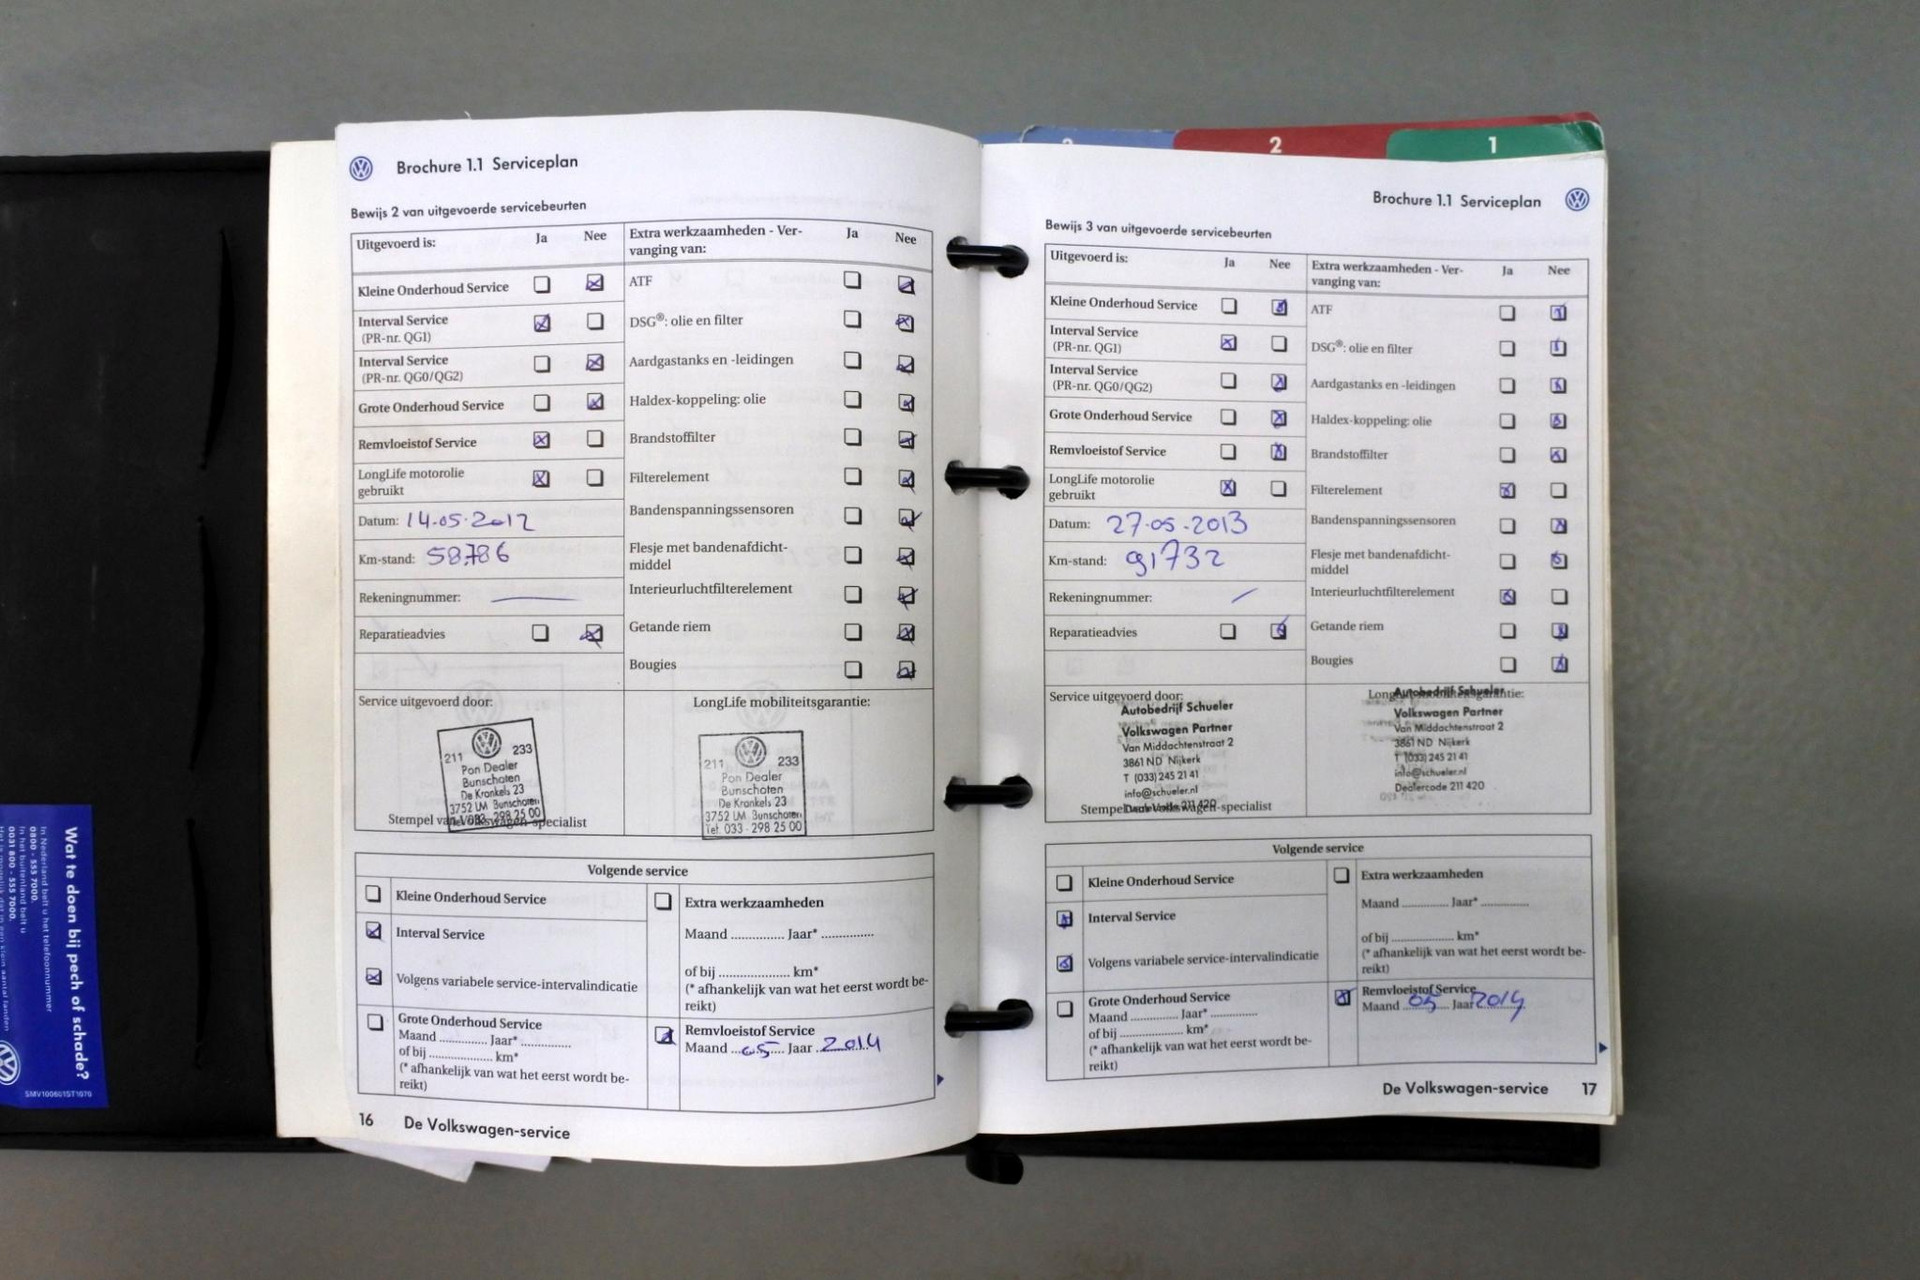 Brochure 1.1 Serviceplan
Bewijs 2 van uitgevoerde servicebeurten
Uitgevoerd is: Ja Nee
Kleine Onderhoud Service
Interval Service
(PR-nr. QG1)
Interval Service
(PR-nr. QG0/QG2)
Grote Onderhoud Service
Remvloeistof Service
LongLife motorolie
gebruikt
Datum: 14-05-2012
Km-stand: 58786
Rekeningnummer:
Reparatieadvies
Extra werkzaamheden - Ver-
vanging van: Ja Nee
ATF
DSG®: olie en filter
Aardgastanks en -leidingen
Haldex-koppeling: olie
Brandstoffilter
Filterelement
Bandenspanningssensoren
Flesje met bandenafdicht-
middel
Interieurluchtfilterelement
Getande riem
Bougies
Service uitgevoerd door:
211 233
Pon Dealer
Bunschoten
De Kronkels 23
3752 LM Bunschoten
Tel. 033 - 298 25 00
Stempel van Volkswagen-specialist
LongLife mobiliteitsgarantie:
211 233
Pon Dealer
Bunschoten
De Kronkels 23
3752 LM Bunschoten
Tel. 033 - 298 25 00
Volgende service
Kleine Onderhoud Service
Interval Service
Volgens variabele service-intervalindicatie
Grote Onderhoud Service
Maand .............. Jaar* ..............
of bij .................. km*
(* afhankelijk van wat het eerst wordt be-
reikt)
Extra werkzaamheden
Maand .............. Jaar* ..............
of bij .................. km*
(* afhankelijk van wat het eerst wordt be-
reikt)
Remvloeistof Service
Maand 05 Jaar 2014
16 De Volkswagen-service
3 2 1
Brochure 1.1 Serviceplan
Bewijs 3 van uitgevoerde servicebeurten
Uitgevoerd is: Ja Nee
Kleine Onderhoud Service
Interval Service
(PR-nr. QG1)
Interval Service
(PR-nr. QG0/QG2)
Grote Onderhoud Service
Remvloeistof Service
LongLife motorolie
gebruikt
Datum: 27-05-2013
Km-stand: 91732
Rekeningnummer:
Reparatieadvies
Extra werkzaamheden - Ver-
vanging van: Ja Nee
ATF
DSG®: olie en filter
Aardgastanks en -leidingen
Haldex-koppeling: olie
Brandstoffilter
Filterelement
Bandenspanningssensoren
Flesje met bandenafdicht-
middel
Interieurluchtfilterelement
Getande riem
Bougies
Service uitgevoerd door:
Autobedrijf Schueler
Volkswagen Partner
Van Middachtenstraat 2
3861 ND Nijkerk
T (033) 245 21 41
info@schueler.nl
Dealercode 211 420
Stempel van Volkswagen-specialist
LongLife mobiliteitsgarantie:
Autobedrijf Schueler
Volkswagen Partner
Van Middachtenstraat 2
3861 ND Nijkerk
T (033) 245 21 41
info@schueler.nl
Dealercode 211 420
Volgende service
Kleine Onderhoud Service
Interval Service
Volgens variabele service-intervalindicatie
Grote Onderhoud Service
Maand .............. Jaar* ..............
of bij .................. km*
(* afhankelijk van wat het eerst wordt be-
reikt)
Extra werkzaamheden
Maand .............. Jaar* ..............
of bij .................. km*
(* afhankelijk van wat het eerst wordt be-
reikt)
Remvloeistof Service
Maand 05 Jaar 2014
De Volkswagen-service 17
Wat te doen bij pech of schade?
In Nederland belt u het telefoonnummer
0800 - 555 7000.
In het buitenland belt u
0031 800 - 555 7000.
SMV100601ST1070